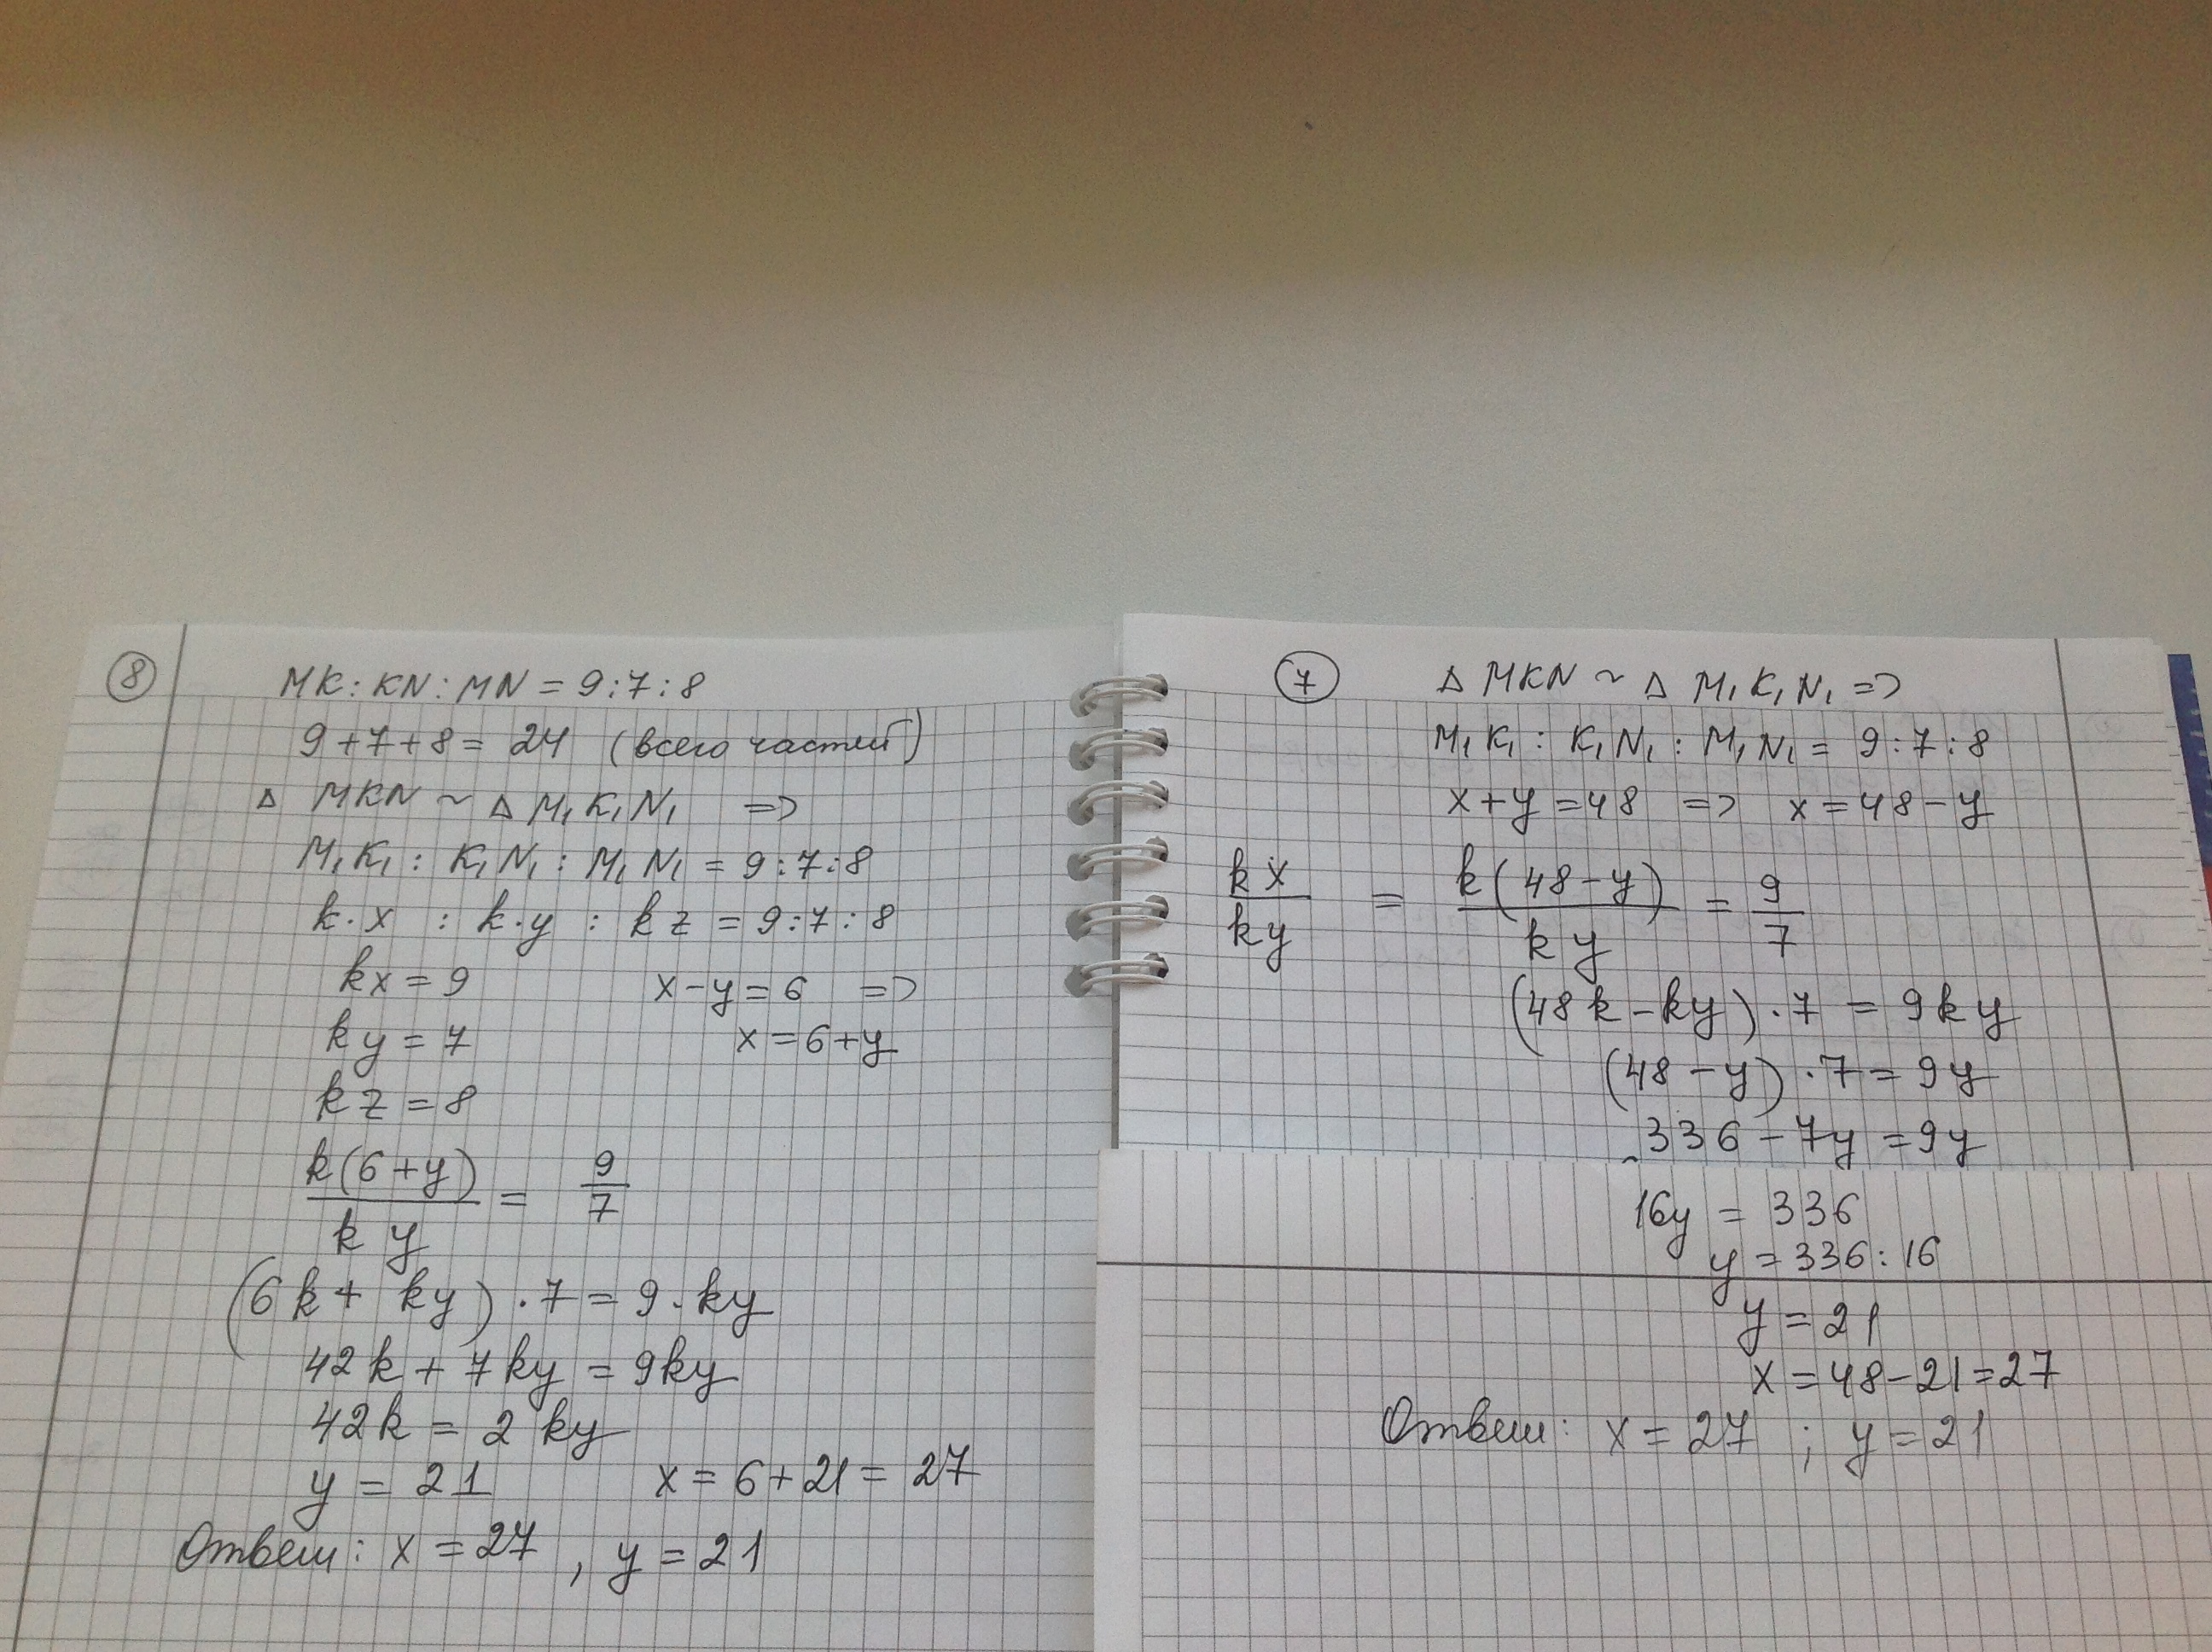 ⑧ MK : KN : MN = 9 : 7 : 8
9 + 7 + 8 = 24 (всего частей)
Δ MKN ~ Δ M₁K₁N₁ =>
M₁K₁ : K₁N₁ : M₁N₁ = 9 : 7 : 8
k·x : k·y : kz = 9 : 7 : 8
kx = 9 x - y = 6 =>
ky = 7 x = 6 + y
kz = 8
k(6+y)/ky = 9/7
(6k + ky) · 7 = 9 · ky
42k + 7ky = 9ky
42k = 2ky
y = 21 x = 6 + 21 = 27
Ответ: x = 27, y = 21
⑦ Δ MKN ~ Δ M₁K₁N₁ =>
M₁K₁ : K₁N₁ : M₁N₁ = 9 : 7 : 8
x + y = 48 => x = 48 - y
kx/ky = k(48-y)/ky = 9/7
(48k - ky) · 7 = 9ky
(48 - y) · 7 = 9y
336 - 7y = 9y
16y = 336
y = 336 : 16
y = 21
x = 48 - 21 = 27
Ответ: x = 27 ; y = 21